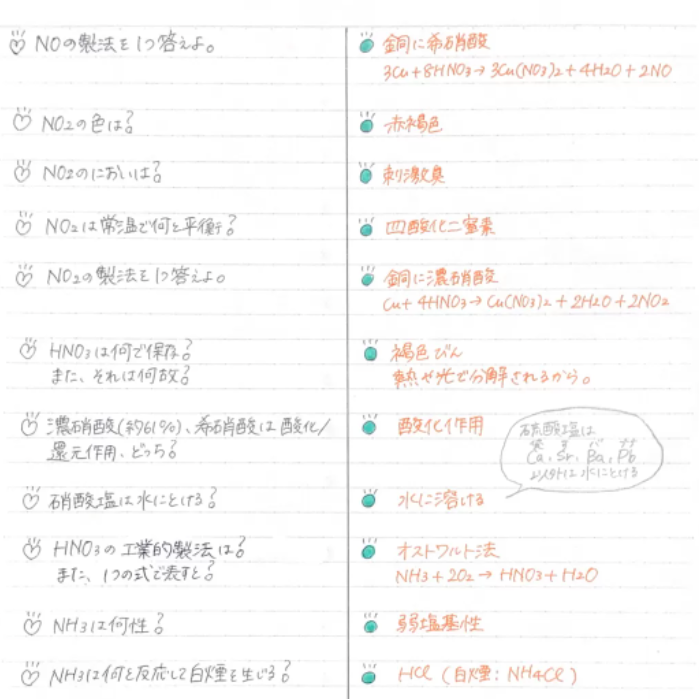 NOの製法を1つ答えよ。
銅に希硝酸
3Cu+8HNO3→3Cu(NO3)2+4H2O+2NO
NO2の色は?
赤褐色
NO2のにおいは?
刺激臭
NO2は常温で何と平衡?
四酸化二窒素
NO2の製法を1つ答えよ。
銅に濃硝酸
Cu+4HNO3→Cu(NO3)2+2H2O+2NO2
HNO3は何で保存?
また、それは何故?
褐色びん
熱や光で分解されるから。
濃硝酸(約61%)、希硝酸は酸化/
還元作用、どっち?
酸化作用
硫酸塩は
Ca, Sr, Ba, Pb
以外は水にとける
硝酸塩は水にとける?
水に溶ける
HNO3の工業的製法は?
また、1つの式で表すと?
オストワルト法
NH3+2O2→HNO3+H2O
NH3は何性?
弱塩基性
NH3は何と反応して白煙を生じる?
HCl(白煙:NH4Cl)